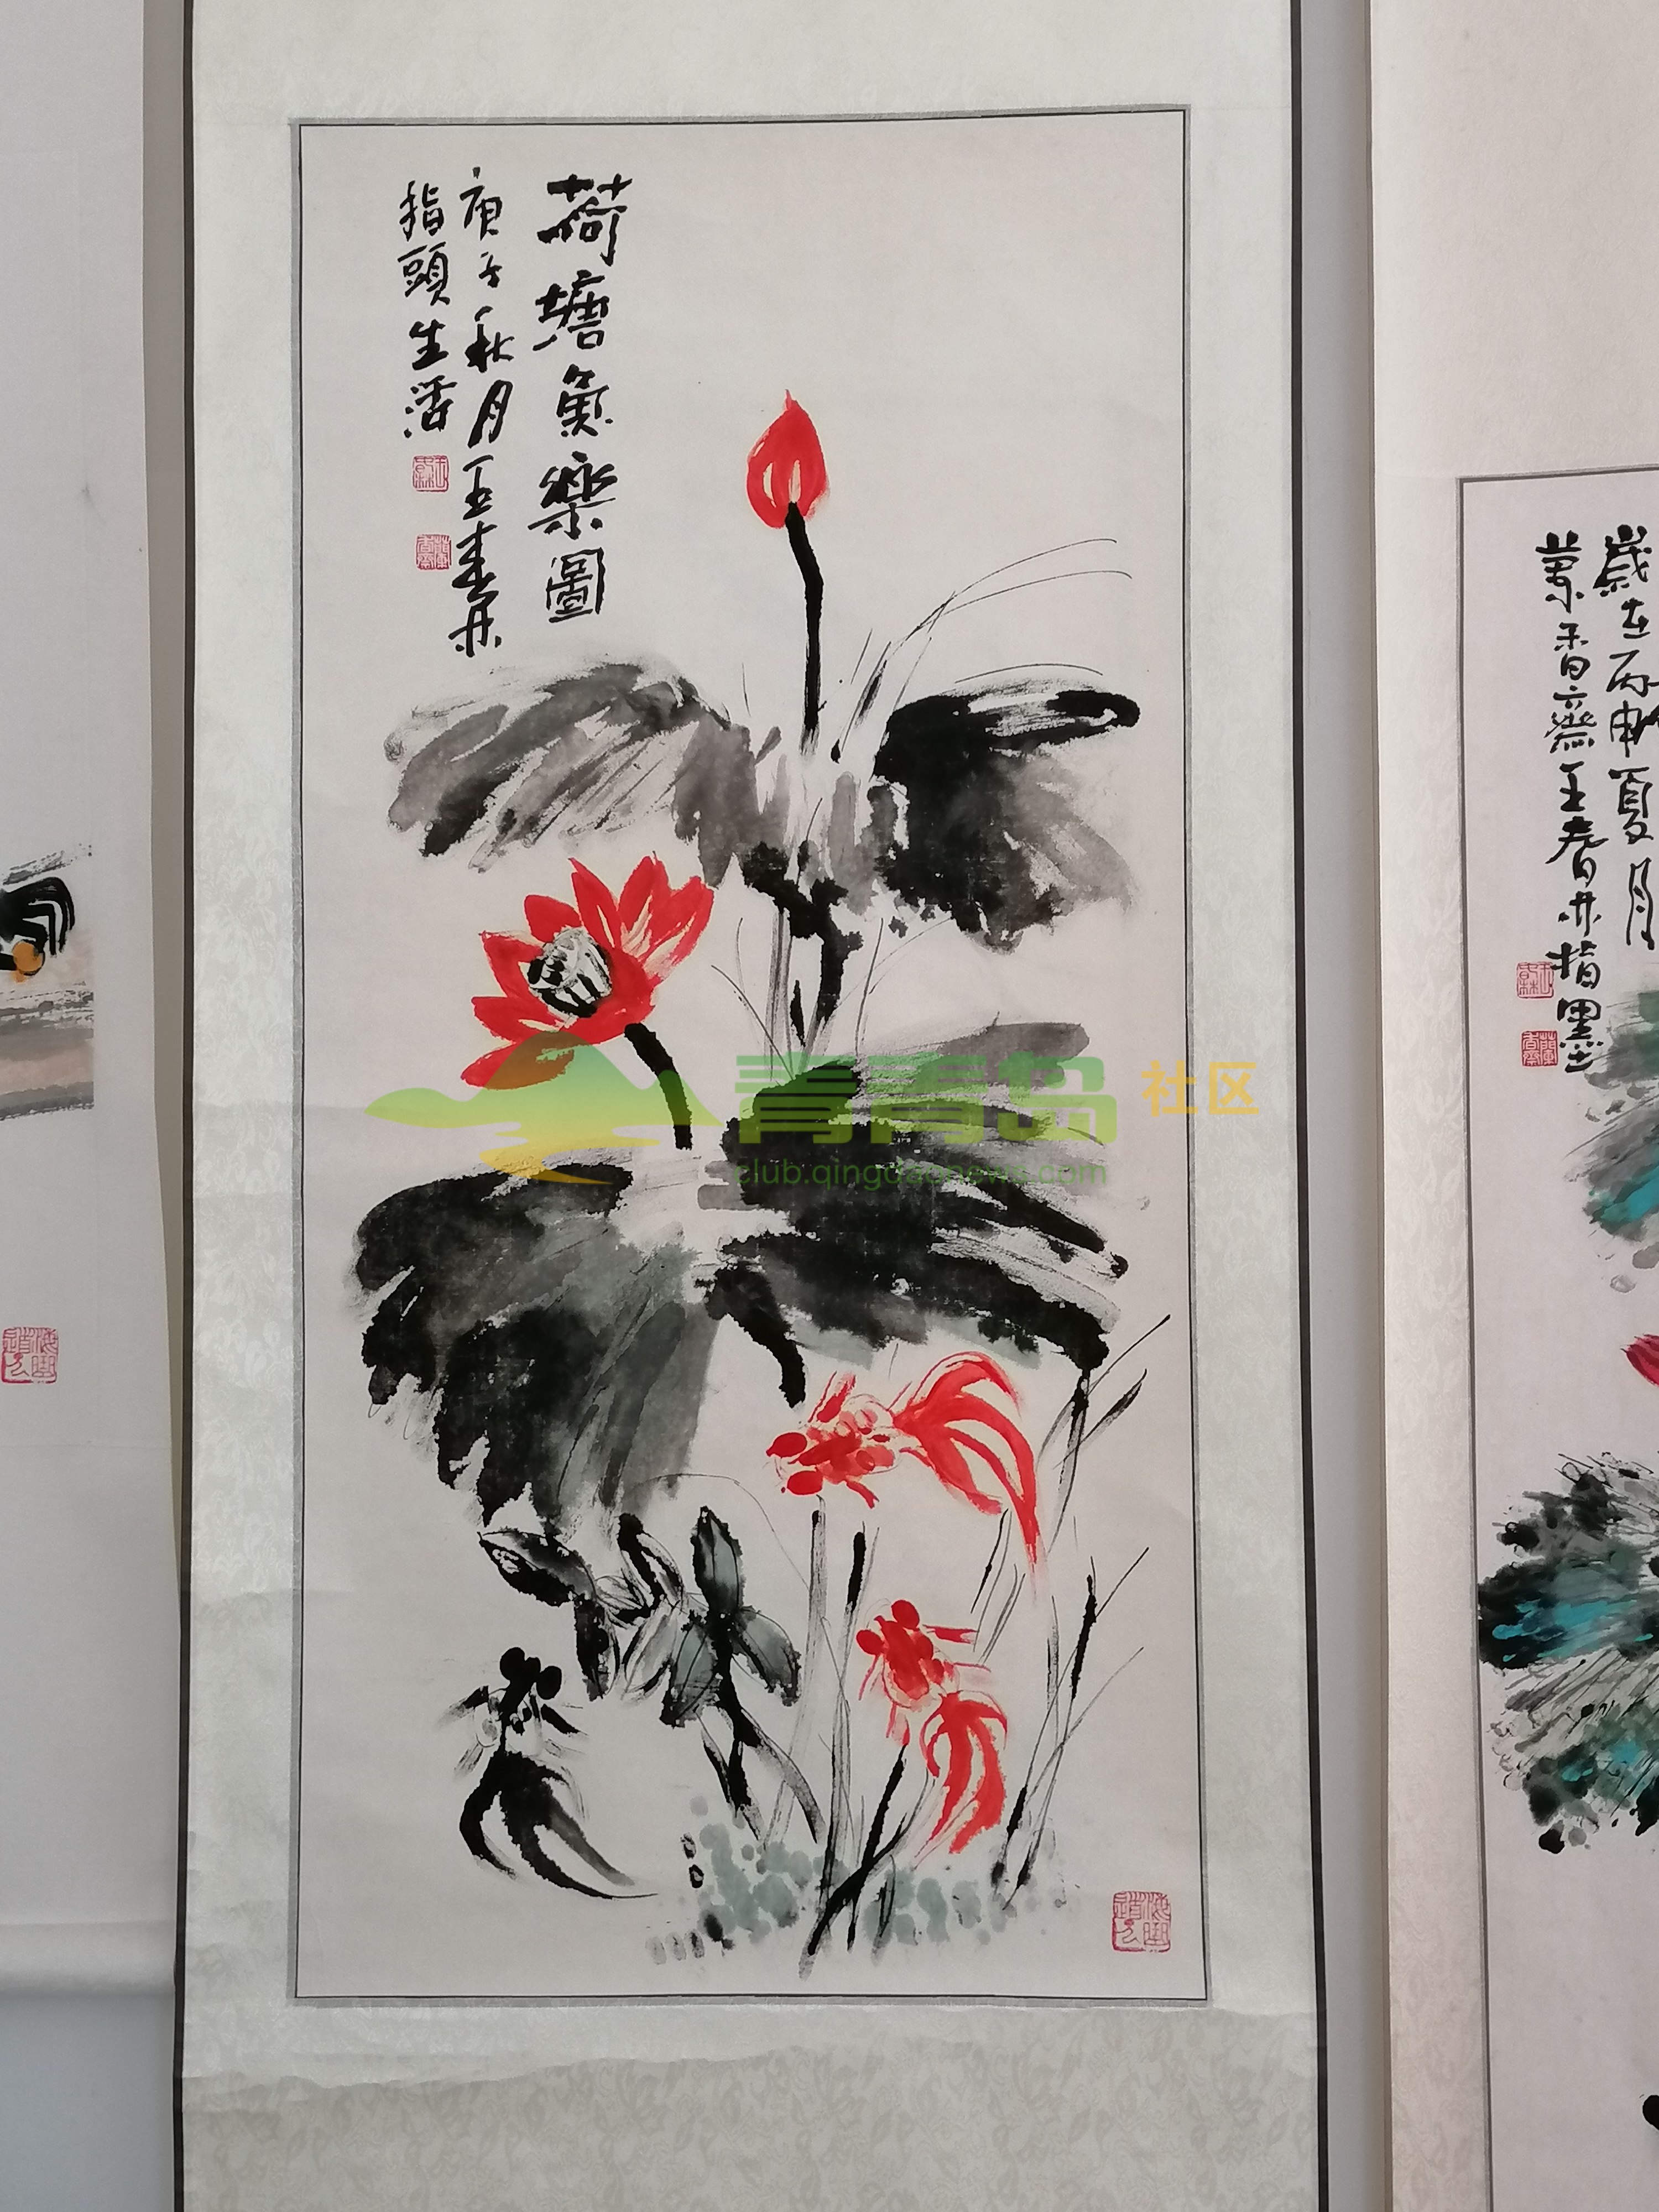 荷塘魚樂圖
庚子秋月王春亦
指頭生活
青青岛社区
club.qingdaonews.com
歲在丙申夏月
蘭香齋王春亦指墨